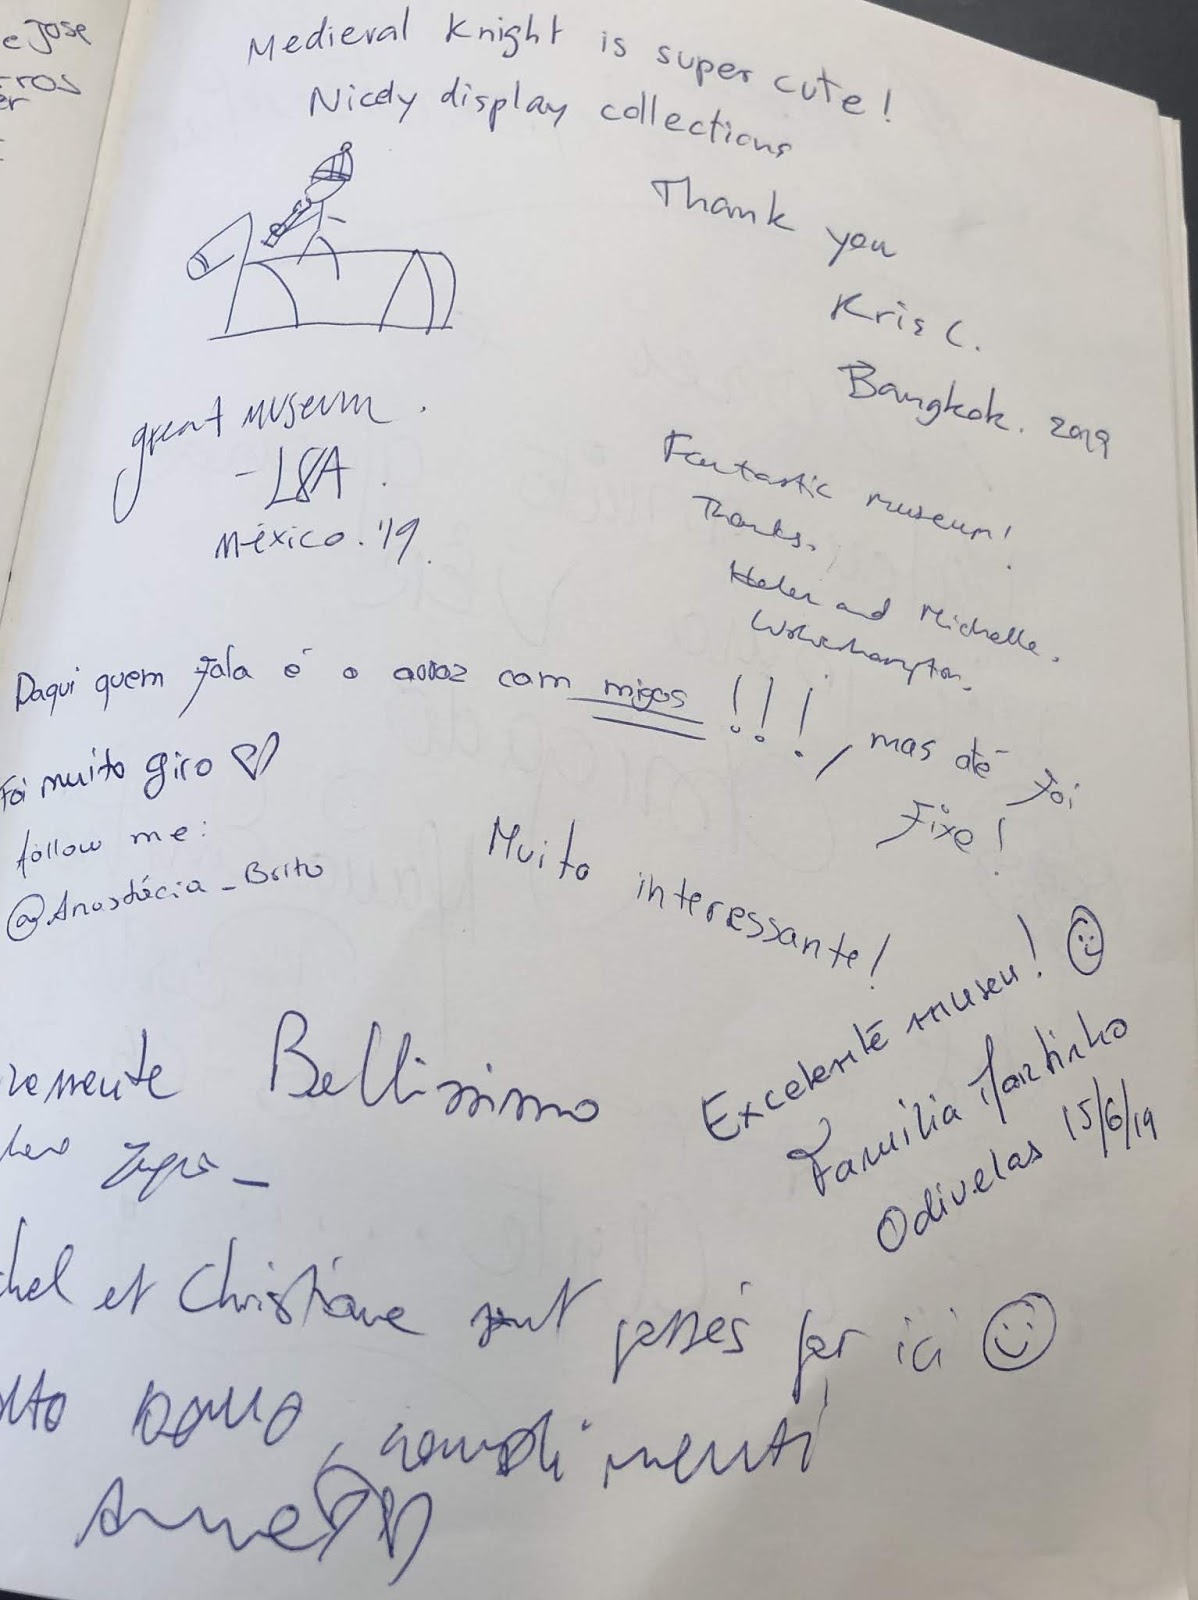 e Jose
rros
er
Medieval Knight is super cute!
Nicely display collections
Thank you
Kris C.
Bangkok. 2019
great museum.
- LSA.
México. '19.
Fantastic museum!
Thanks.
Helen and Michelle.
Wolverhampton.
Daqui quem fala é o arroz com migos!!!, mas até foi
Fixe!
Foi muito giro ♡
follow me:
@Anastácia_Brito
Muito interessante!
Excelente museu! ☺
Família Martinho
Odivelas 15/6/19
remente Bellissimo
chel et Christiane sont passés par ici ☺
lto bello, complimenti
Anne ♡